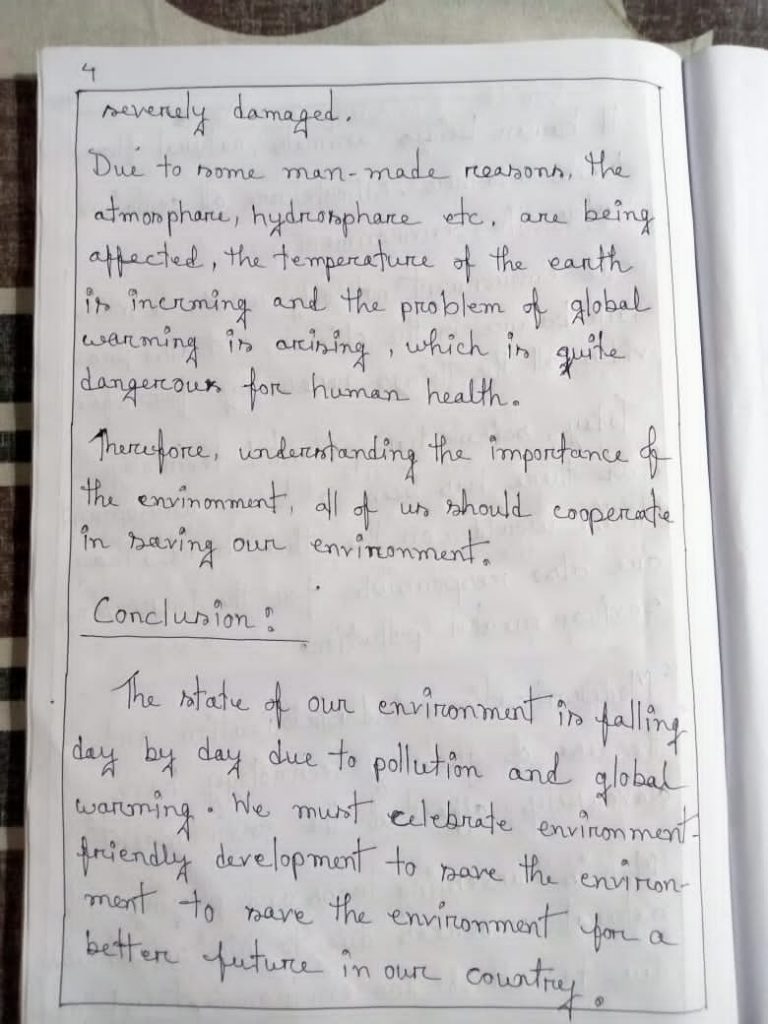 4
severely damaged.
Due to some man-made reasons, the
atmosphare, hydrosphare etc. are being
affected, the temperature of the earth
is incrming and the problem of global
warming is arising, which is quite
dangerous for human health.
Therefore, understanding the importance of
the environment, all of us should cooperate
in saving our environment.
Conclusion:
The state of our environment is falling
day by day due to pollution and global
warming. We must celebrate environment-
friendly development to save the environ-
ment to save the environment for a
better future in our country.